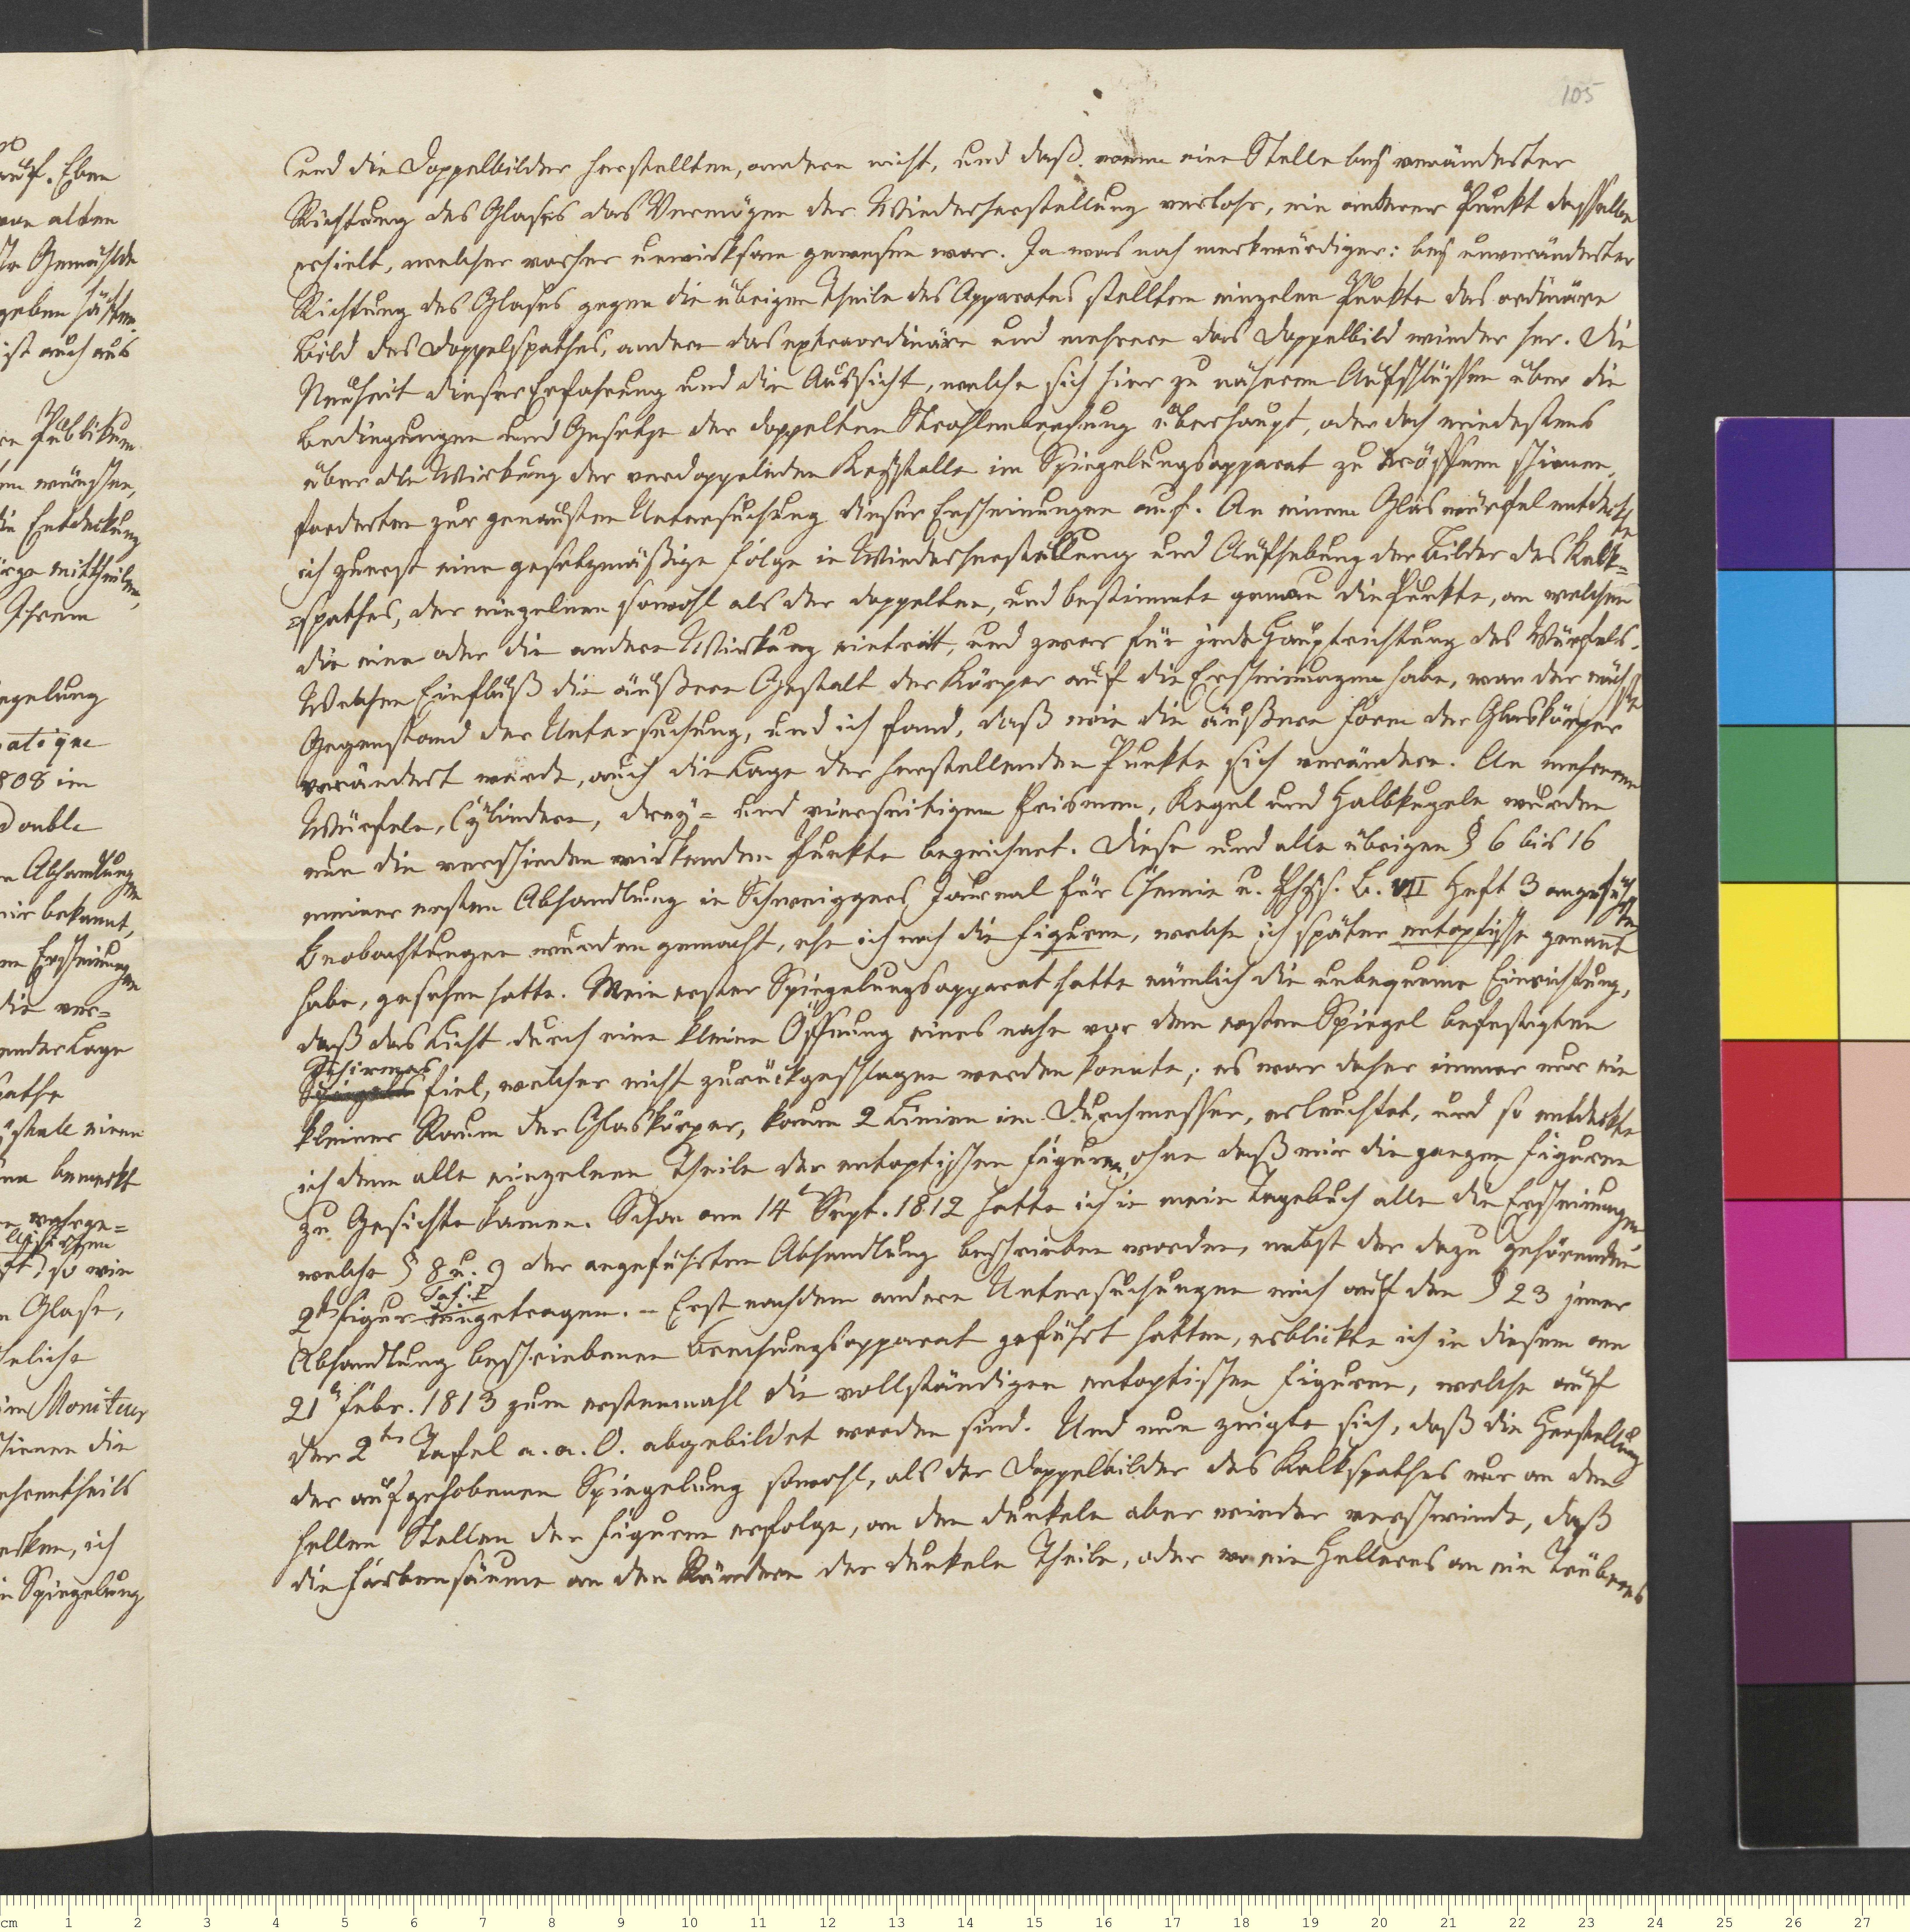 105
und die Doppelbilder herstellten, andere nicht, und daß wenn eine Stelle bey veränderter
Richtung des Glases das Vermögen der Wiederherstellung verlohr, ein anderer Punkt dasselbe
erhielt, welcher vorher unwirksam gewesen war. Ja was noch merkwürdiger: bey unveränderter
Richtung des Glases gegen die übrigen Theile des Apparates stellten einzelne Punkte das ordinäre
Bild des Doppelspathes, andere das extraordinäre und mehrere das Doppelbild wieder her. Die
Neuheit dieser Erfahrung und die Aussicht, welche sich hier zu näheren Aufschlüssen über die
Bedingungen und Gesetze der doppelten Strahlenbrechung überhaupt, oder doch mindestens
über die Wirkung der verdoppelnden Krystalle im Spiegelungsapparat zu eröffnen schienen,
forderten zur genausten Untersuchung dieser Erscheinungen auf. An einem Glaswürfel entdeckte
ich zuerst eine gesetzmäßige Folge in Wiederherstellung und Aufhebung der Bilder des Kalk=
=spathes, der einzelnen sowohl als der doppelten, und bestimmte genau die Punkte, an welchen
die eine oder die andere Wirkung eintritt, und zwar für jede Hauptrichtung des Würfels.
Welchen Einfluß die äußere Gestalt der Körper auf die Erscheinungen habe, war der nächste
Gegenstand der Untersuchung, und ich fand, daß wie die äußere Form der Glaskörper
verändert werde, auch die Lage der herstellenden Punkte sich verändere. An mehreren
Würfeln, Cÿlindern, dreÿ= und vierseitigen Prismen, Kegel und Halbkugeln wurden
nun die verschieden wirkenden Punkte bezeichnet. Diese und alle übrigen § 6 bis 16
meiner ersten Abhandlung in Schweiggers Journal für Chemie u. Phys. B. VII Heft 3 angeführten
Beobachtungen wurden gemacht, ehe ich noch die Figuren, welche ich später entoptische genannt
habe, gesehen hatte. Mein erster Spiegelungsapparat hatte nämlich die unbequeme Einrichtung,
daß das Licht durch eine kleine Öffnung eines nahe vor dem ersten Spiegel befestigten
Schirmes
Spiegels fiel, welcher nicht zurückgeschlagen werden konnte; es war daher immer nur ein
kleiner Raum der Glaskörper, kaum 2 Linien im Durchmesser, erleuchtet, und so entdeckte
ich denn alle einzelnen Theile der entoptischen Figuren, ohne daß mir die ganzen Figuren
zu Gesichte kamen. Schon am 14t Sept. 1812 hatte ich in mein Tagebuch alle die Erscheinungen
welche § 8 u. 9 der angeführten Abhandlung beschrieben worden, nebst der dazu gehörenden
Taf: I
2tn Figur eingetragen. – Erst nachdem andere Untersuchungen mich auf den § 23 jener
Abhandlung beschriebenen Brechungsapparat geführt hatten, erblickte ich in diesem am
21n Febr. 1813 zum erstenmahl die vollständigen entoptischen Figuren, welche auf
der 2tn Tafel a. a. O. abgebildet worden sind. Und nun zeigte sich, daß die Herstellung
der aufgehobenen Spiegelung sowohl, als der Doppelbilder des Kalkspathes nur an den
hellen Stellen der Figuren erfolge, an den dunkeln aber wieder verschwinde, daß
die Farbensäume an den Rändern der dunkeln Theile, oder wo ein Helleres an ein Trüberes
auf. Eben
von alten
Gemählde
geben hätten.
ist auch aus
Publikum
wünschen,
die Entdeckung
mittheilen,
Ihrem
808 im
Double
Abhandlung
mir bekannt,
Erscheinungen
die ver=
bemerkt
so wie
Glase,
im Moniteur
schienen die
ich
Spiegelung